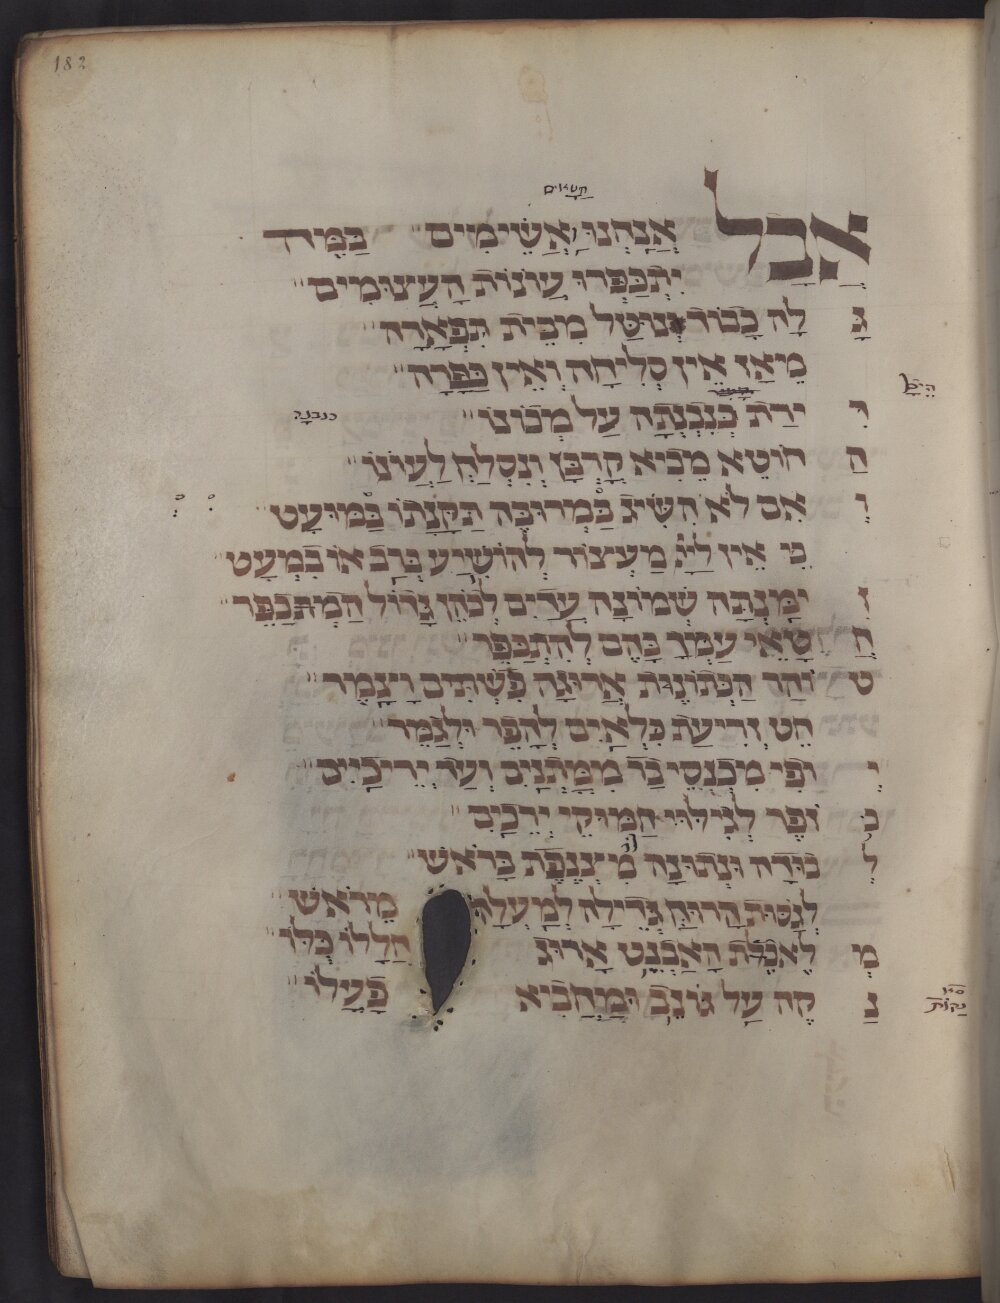 182
חַטָּאִים
אֲבָל אֲנַחְנוּ אֲשֵׁימִים בַּמֶּה
יִתְכַּפְּרוּ עֲוֹנוֹת הָעֲצוּמִים
גָּ לָה כָבוֹד וְנוּטַּל מִבֵּית תִּפְאָרָה
מֵאָז אֵין סְלִיחָה וְאֵין כַּפָּרָה
דִּ ירַת כְּנִבְנְתָה עַל מְכוֹנוֹ
כנבנה
הַ חוֹטֵא מֵבִיא קָרְבָּן וְנִסְלַח לַעֲוֹנוֹ
וְ אִם לֹא הִשִּׂיג בַּמְרוּבֶּה תַּקָּנָתוֹ בַּמּוּעָט
כִּי אֵין לַייָ מַעְצוֹר לְהוֹשִׁיעַ בְּרָב אוֹ בִמְעַט
זִ ימַּנְתָּה שְׁמוֹנָה עֵדִים לְכֹהֵן גָּדוֹל הַמִּתְכַּפֵּר
חֲ טָאֵי עַמְּךָ בָּהֶם לְהִתְכַּפֵּר
ט וֹהַר הַכְּתוֹנֶת אֲרוּגָה פִּשְׁתִּים וָצֶמֶר
חֵט זְרִיעַת כִּלְאַיִם לְהָפֵר וּלְגַמֵּר
יְ וֹפִי מִכְנְסֵי בַד מִמָּתְנַיִם וְעַד יְרֵיכַיִים
כִּ וּפֶּר לְגִילּוּי חַמּוּקֵי יְרֵכַיִם
לְ בוּדָה וּנְתוּנָה מִצְנֶפֶת בָּרֹאשׁ
לְגַסּוּת הָרוּחַ גְּדֵילָה לְמַעְלָה מֵרֹאשׁ
מְ לֶאכֶת הָאַבְנֵט אָרוּג חֲלָלוֹ כֻּלּוֹ
נִ קָה עַל גּוֹנֵב וּמַחְבִּיא פָּעֳלוֹ